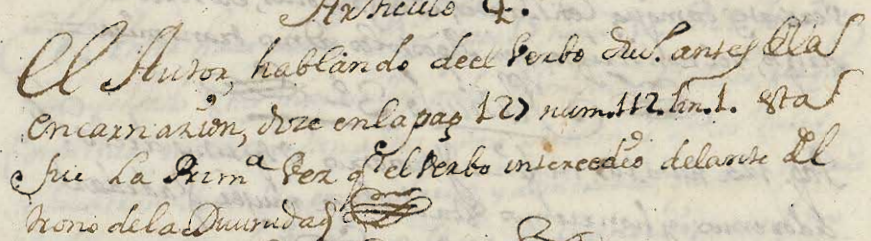 Articulo 4.
El Autor, hablando de el Verbo Div.º antes de la
encarnazion, dize en la pag 127 num. 112. lin. 1. esta
fue la Prim.ª vez q.e el Verbo intercedio delante del
trono de la Divinidad